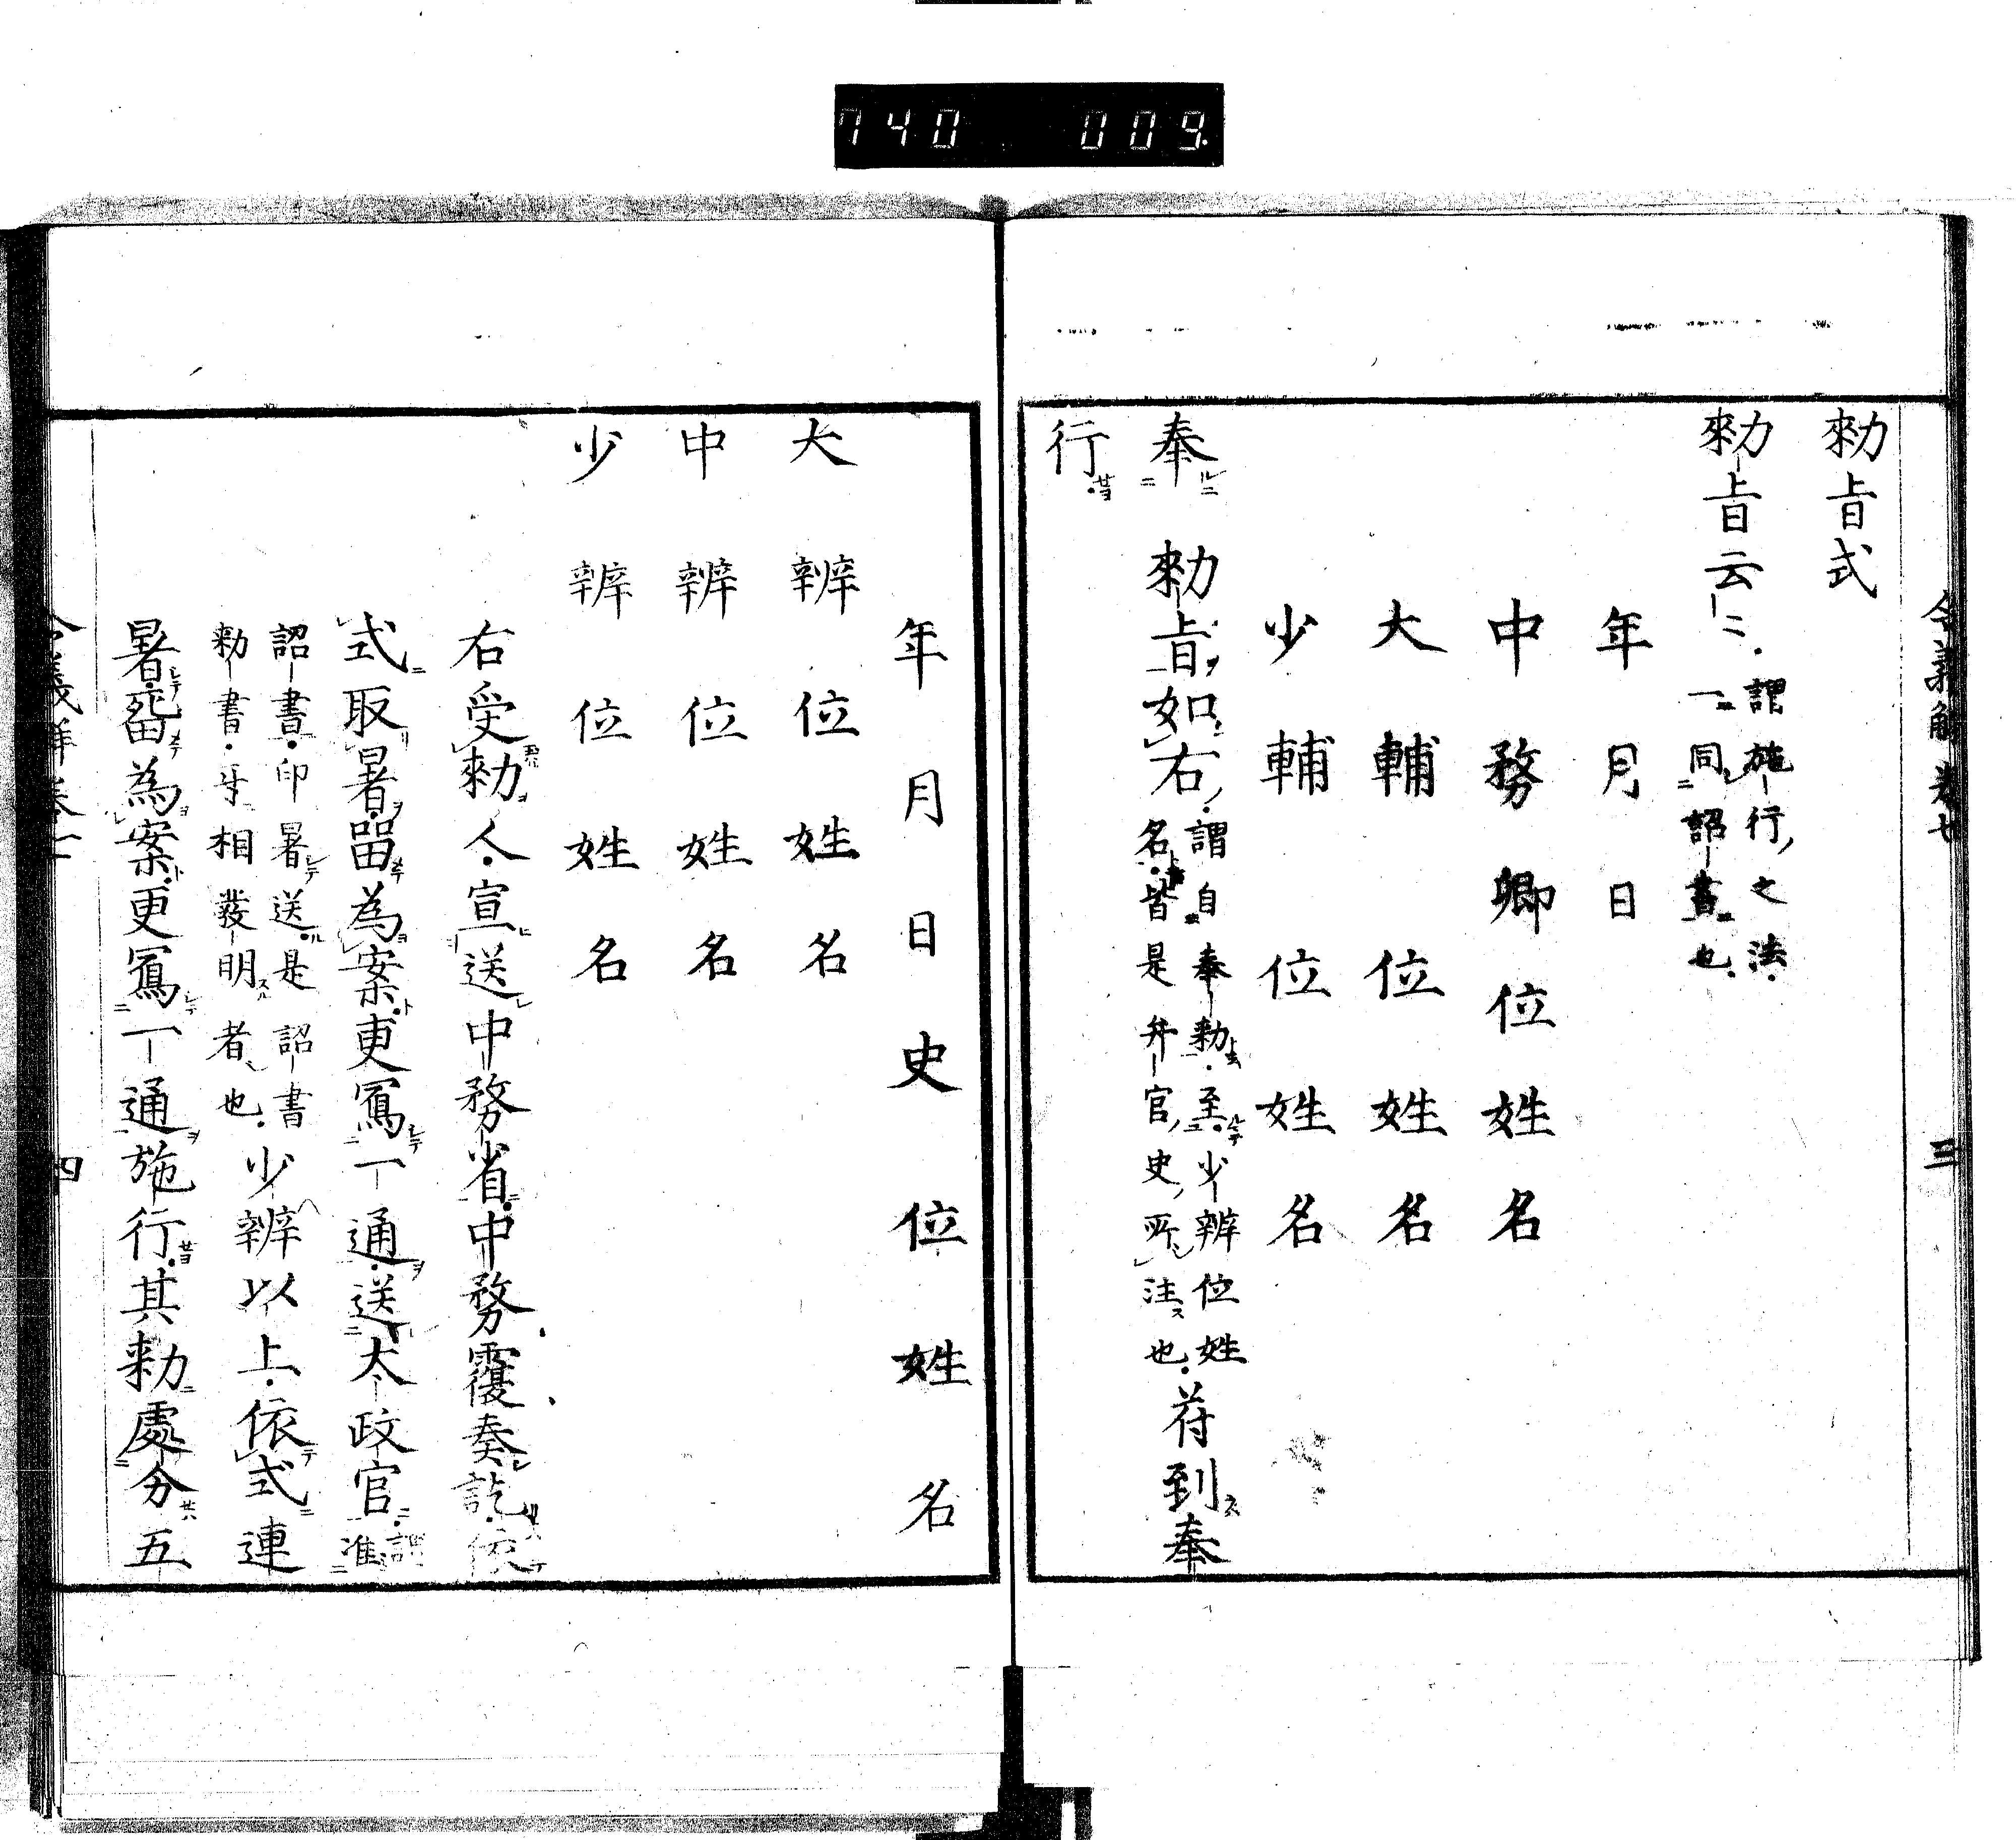 740 009
令義解卷七 三
勅旨式
勅旨云〻謂施行之法
一同詔書也
年月日
中務卿位姓名
大輔位姓名
少輔位姓名
奉勅旨如右謂自奉勅至少辨位姓
名皆是弁官史所注也苻到奉
行
年月日史位姓名
大辨位姓名
中辨位姓名
少辨位姓名
右受勅人宣送中務省中務覆奏訖依
式取署留為案更寫一通送太政官謂准
詔書印署送是詔書
勅書互相發明者也少辨以上依式連
署留為案更寫一通施行其勅處分五
四